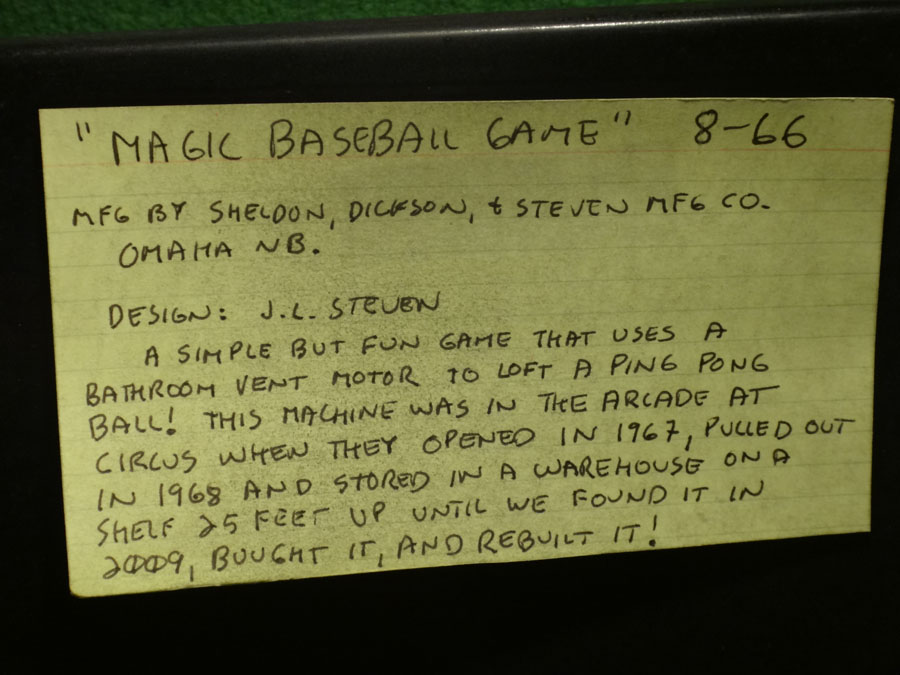 "MAGIC BASEBALL GAME" 8-66
MFG BY SHELDON, DICKSON, & STEVEN MFG CO.
OMAHA NB.
DESIGN: J.L. STEVEN
A SIMPLE BUT FUN GAME THAT USES A
BATHROOM VENT MOTOR TO LOFT A PING PONG
BALL! THIS MACHINE WAS IN THE ARCADE AT
CIRCUS WHEN THEY OPENED IN 1967, PULLED OUT
IN 1968 AND STORED IN A WAREHOUSE ON A
SHELF 25 FEET UP UNTIL WE FOUND IT IN
2009, BOUGHT IT, AND REBUILT IT!